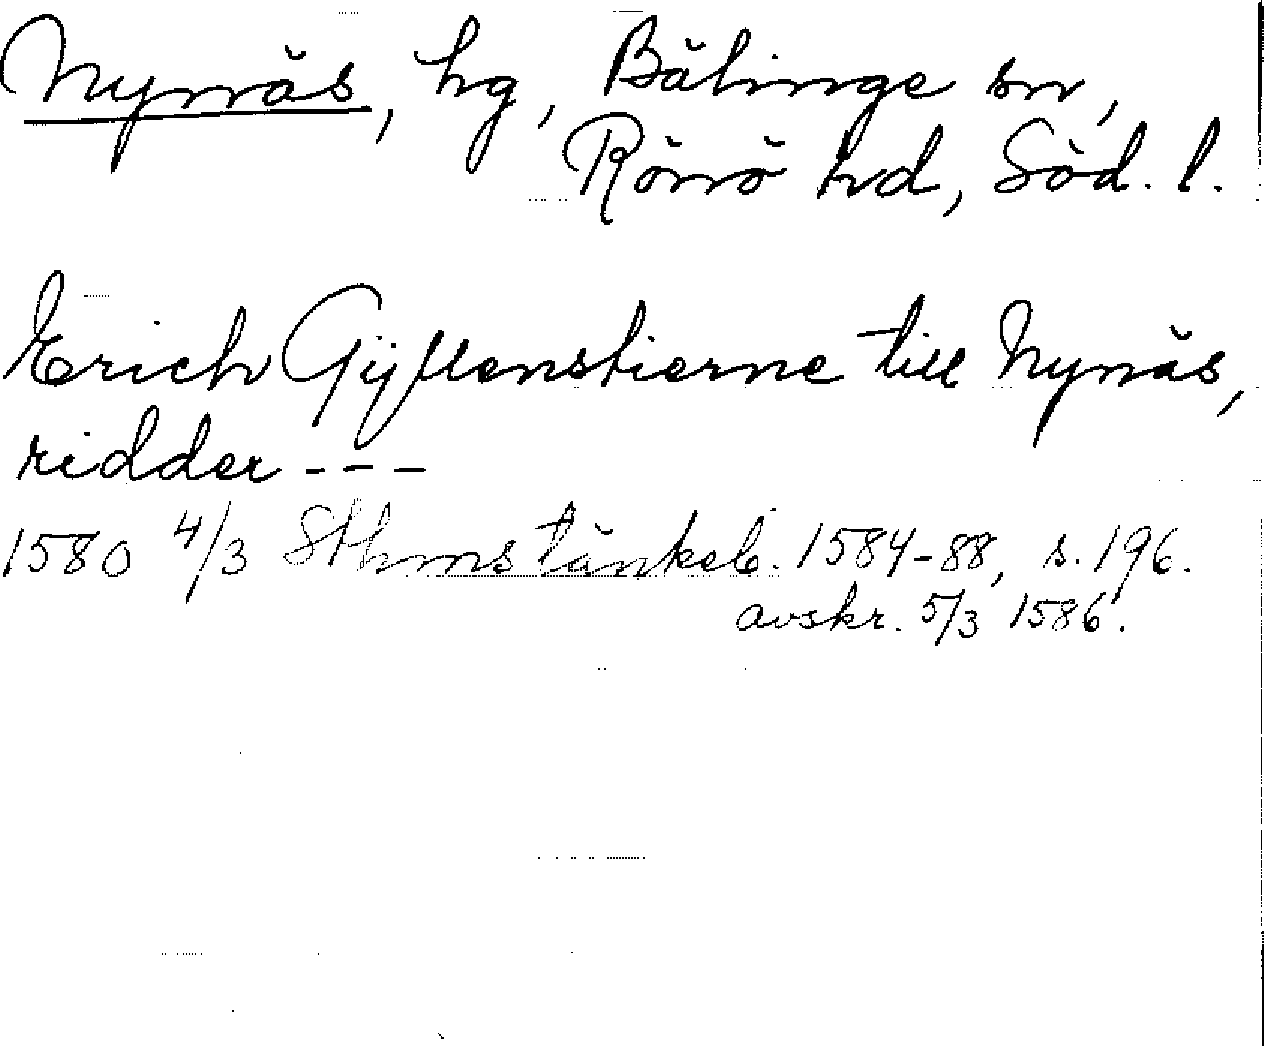 Nynäs, hg, Bälinge sn,
Rönö hd, Söd. l.
Erich Gÿllenstierne till Nynäs,
ridder - - -
1580 4/3 Sthms tänkeb. 1584-88, s. 196.
avskr. 5/3 1586.